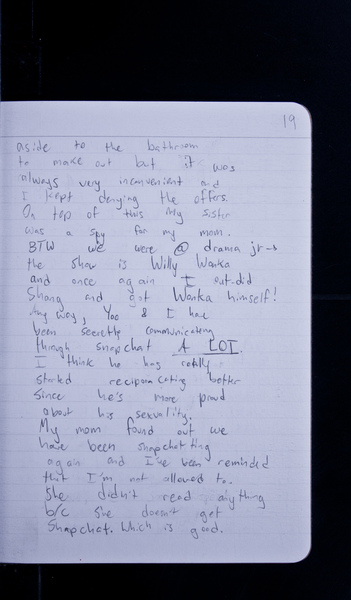 19
aside to the bathroom
to make out but it was
always very inconvenient and
I kept denying the offers.
On top of this my sister
was a spy for my mom.
BTW we were @ drama jr →
the show is Willy Wonka
and once again I out-did
Shang and got Wonka himself!
Any way, Yao & I have
been secretly communicating
through snapchat A LOT.
I think he has really
started reciprocating better
since he's more proud
about his sexuality.
My mom found out we
have been snapchatting
again and I've been reminded
that I'm not allowed to.
She didn't read anything
b/c she doesn't get
Snapchat. Which is good.